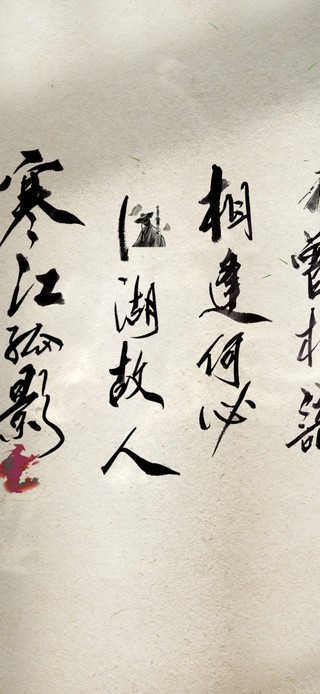 寒江孤影
江湖故人
相逢何必
曾相